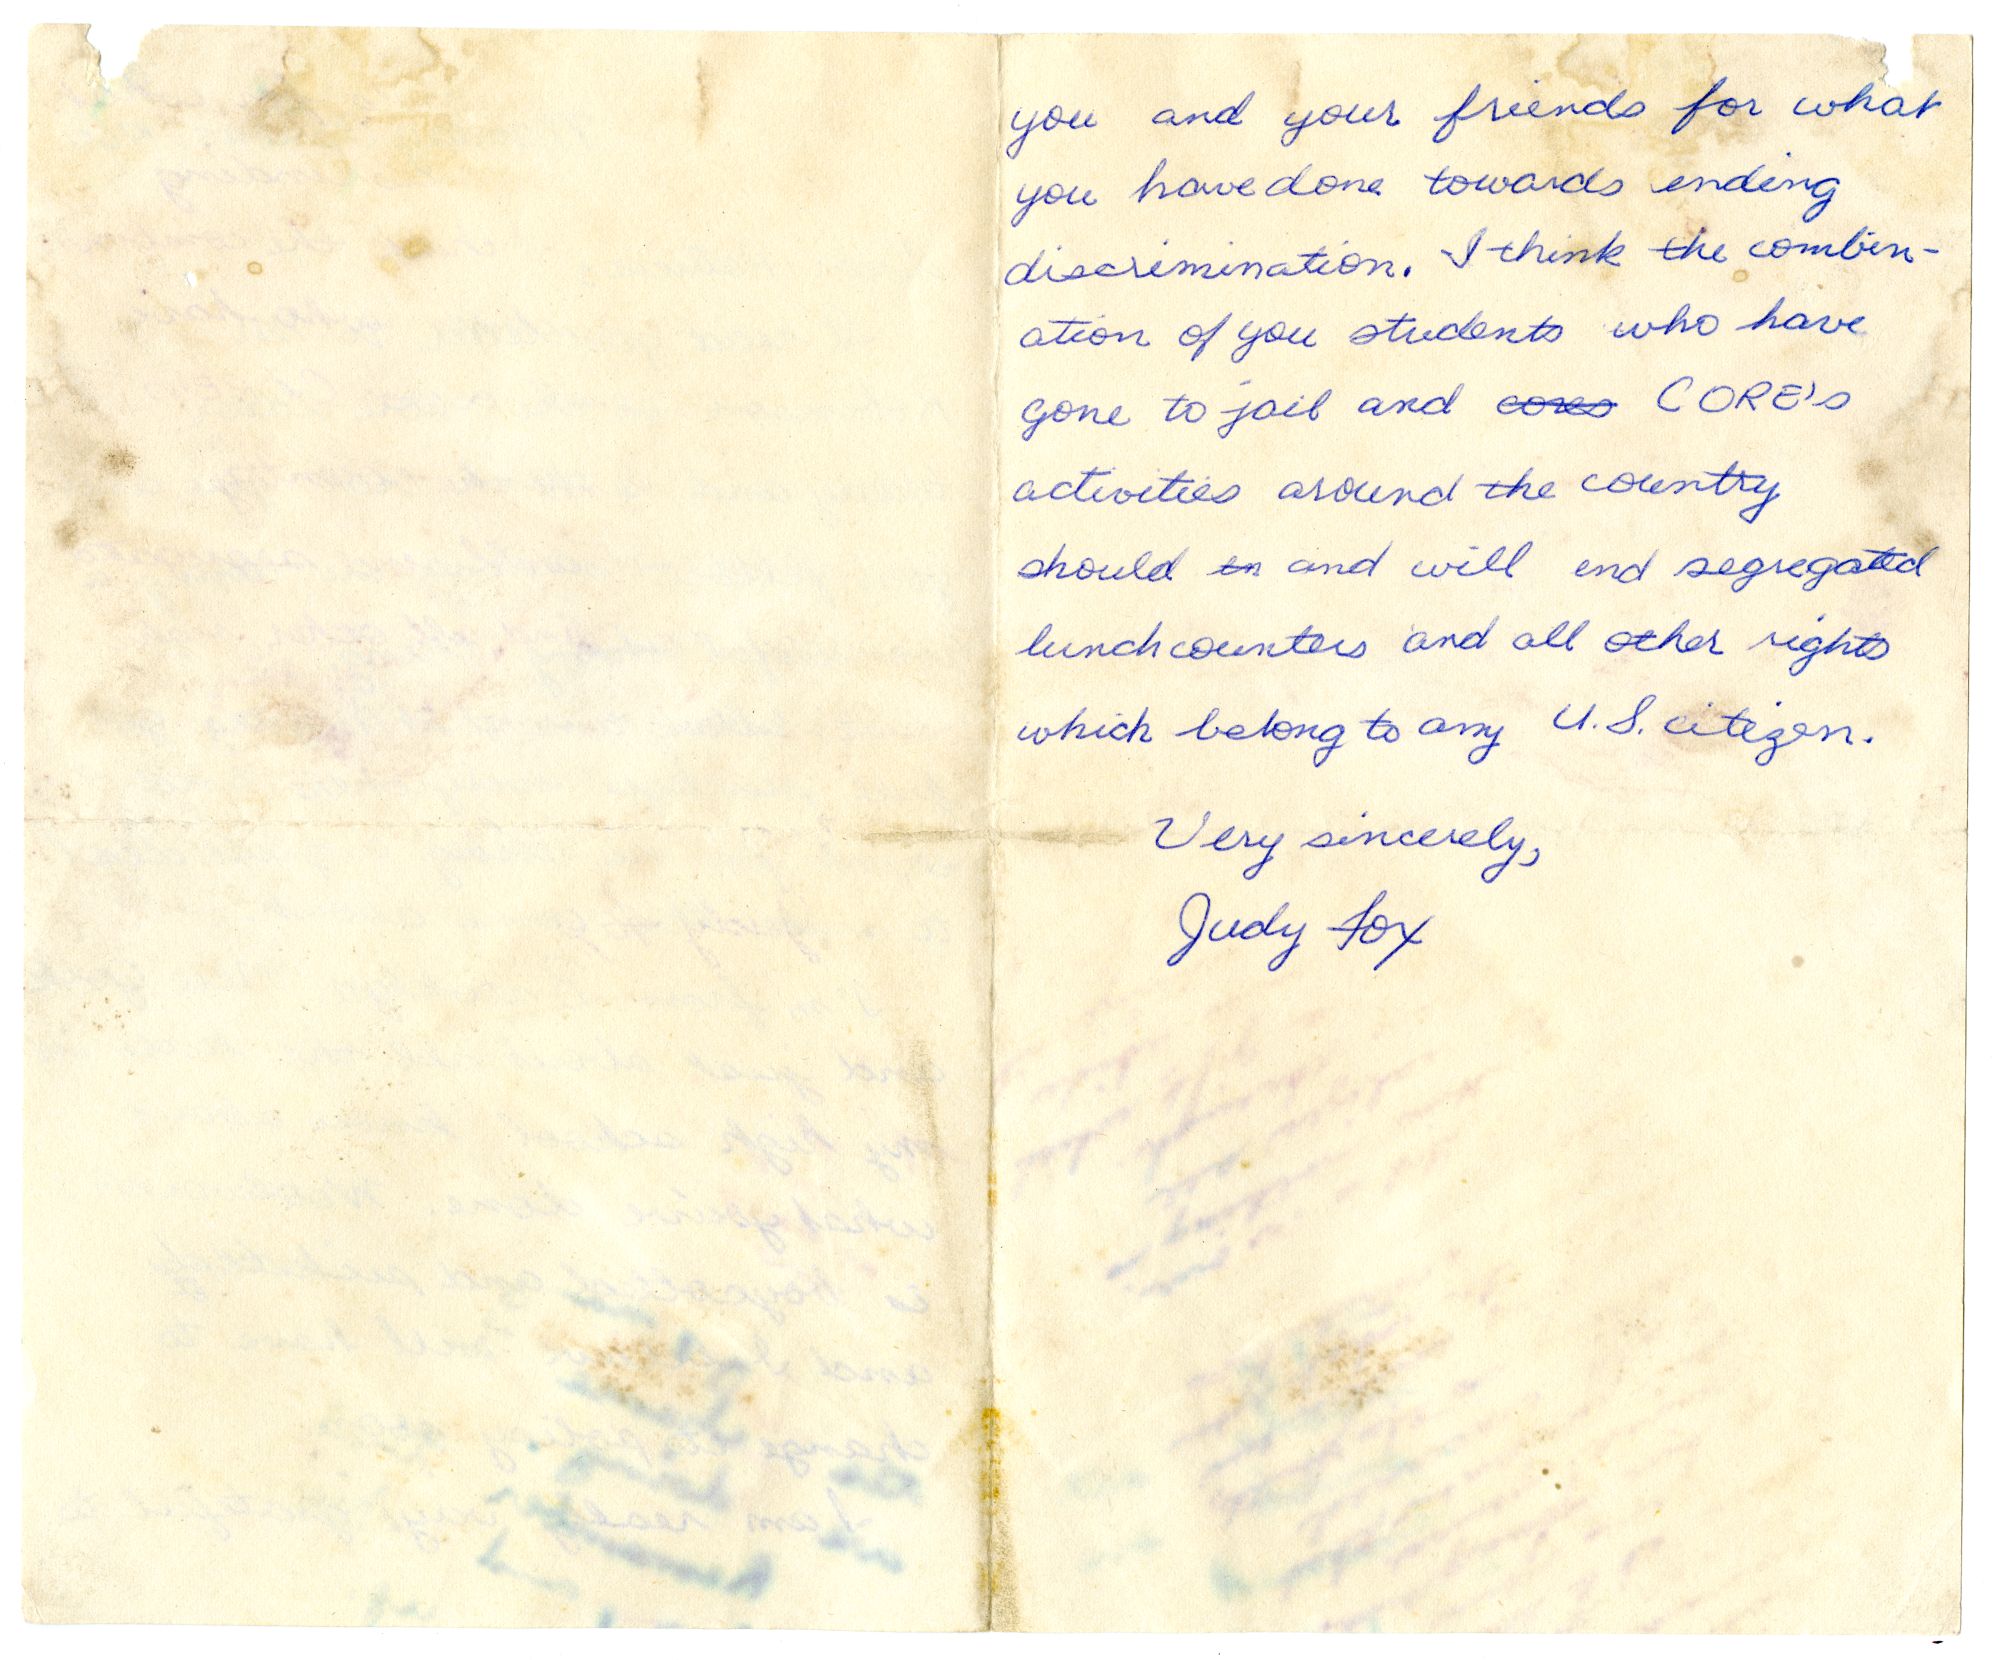 you and your friends for what
you have done towards ending
discrimination. I think the combin-
ation of you students who have
gone to jail and cores CORE's
activities around the country
should en and will end segregated
lunch counters and all other rights
which belong to any U.S. citizen.
Very sincerely,
Judy Fox